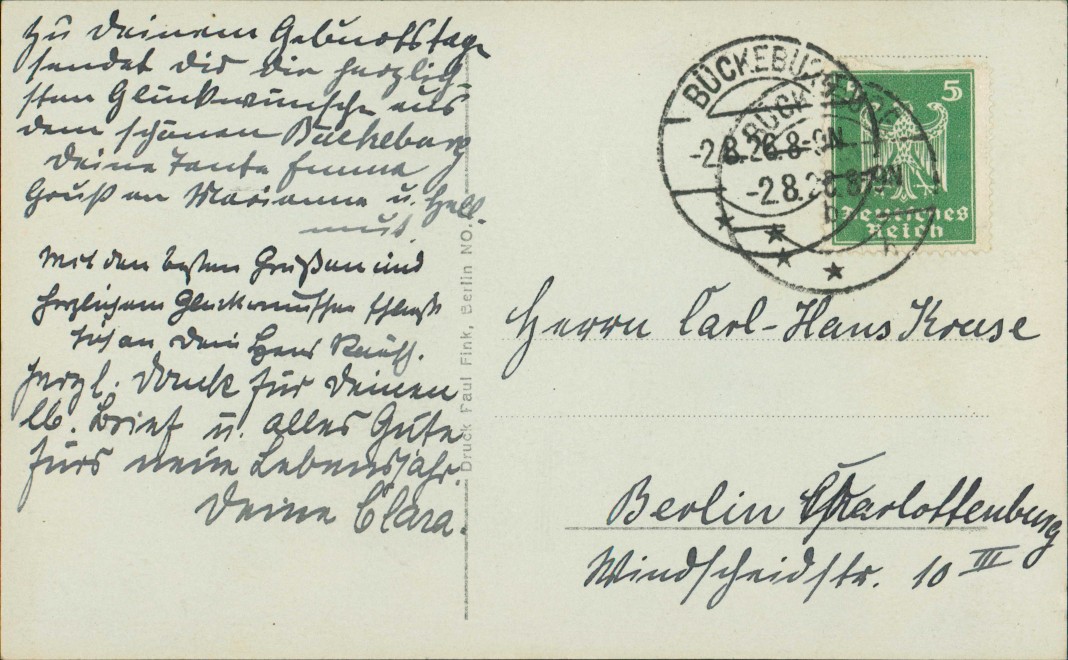 Zu Deinem Geburtstage
sendet dir die herzlig
sten Glückwünsche aus
dem schönen Bückeburg
Deine Tante Emma
Gruß an Marianne u. Hell-
mut.
Mit den besten Grüßen und
herzlichem Glückwunsch schließt
sich an Dein
Herzl. Dank für Deinen
lb. Brief u. alles Gute
fürs neue Lebensjahr.
Deine Clara.
Druck Paul Fink, Berlin NO.
BÜCKEBURG
-2.8.26.8-9N.
BÜCKEBURG
-2.8.26.8-9N
b
5
Deutsches
Reich
Herrn Carl-Hans Kruse
Berlin Charlottenburg
Windscheidstr. 10 III